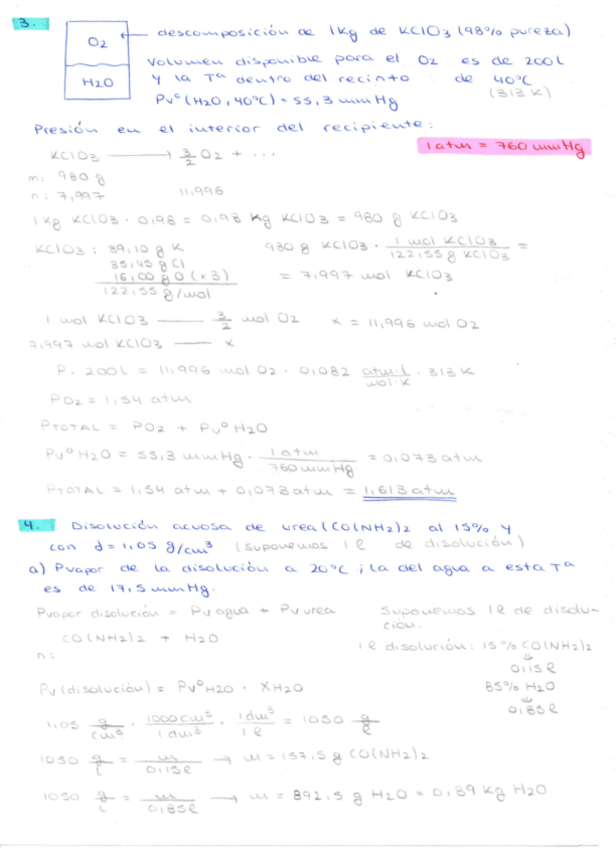 3.
O2
H2O
descomposición de 1Kg de KClO3 (98% pureza)
Volumen disponible para el O2 es de 200l
y la Tª dentro del recinto de 40ºC
(313 K)
Pvº (H2O, 40ºC) = 55,3 mmHg
Presión en el interior del recipiente:
1 atm = 760 mmHg
KClO3 ⟶ 3/2 O2 + ...
m: 980 g
n: 7,997 11,996
1 Kg KClO3 · 0,98 = 0,98 Kg KClO3 = 980 g KClO3
KClO3: 39,10 g K
35,45 g Cl
16,00 g O (x3)
122,55 g/mol
980 g KClO3 · 1 mol KClO3 / 122,55 g KClO3 =
= 7,997 mol KClO3
1 mol KClO3 —— 3/2 mol O2 x = 11,996 mol O2
7,997 mol KClO3 —— x
P · 200L = 11,996 mol O2 · 0,082 atm·l / mol·K · 313 K
PO2 = 1,54 atm
PTOTAL = PO2 + Pvº H2O
Pvº H2O = 55,3 mmHg · 1 atm / 760 mmHg = 0,073 atm
PTOTAL = 1,54 atm + 0,073 atm = 1,613 atm
4. Disolución acuosa de urea (CO(NH2)2 al 15% y
con d = 1,05 g/cm³ (suponemos 1 l de disolución)
a) Pvapor de la disolución a 20ºC; la del agua a esta Tª
es de 17,5 mmHg.
Pvapor disolución = Pv agua + Pv urea
Suponemos 1l de disolu-
ción.
CO(NH2)2 + H2O
n:
1l disolución: 15% CO(NH2)2
↓
0,15 l
85% H2O
↓
0,85 l
Pv (disolución) = PvºH2O · XH2O
1,05 g/cm³ · 1000 cm³ / 1 dm³ · 1 dm³ / 1 l = 1050 g/l
1050 g/l = m / 0,15l → m = 157,5 g CO(NH2)2
1050 g/l = m / 0,85l → m = 892,5 g H2O = 0,89 Kg H2O